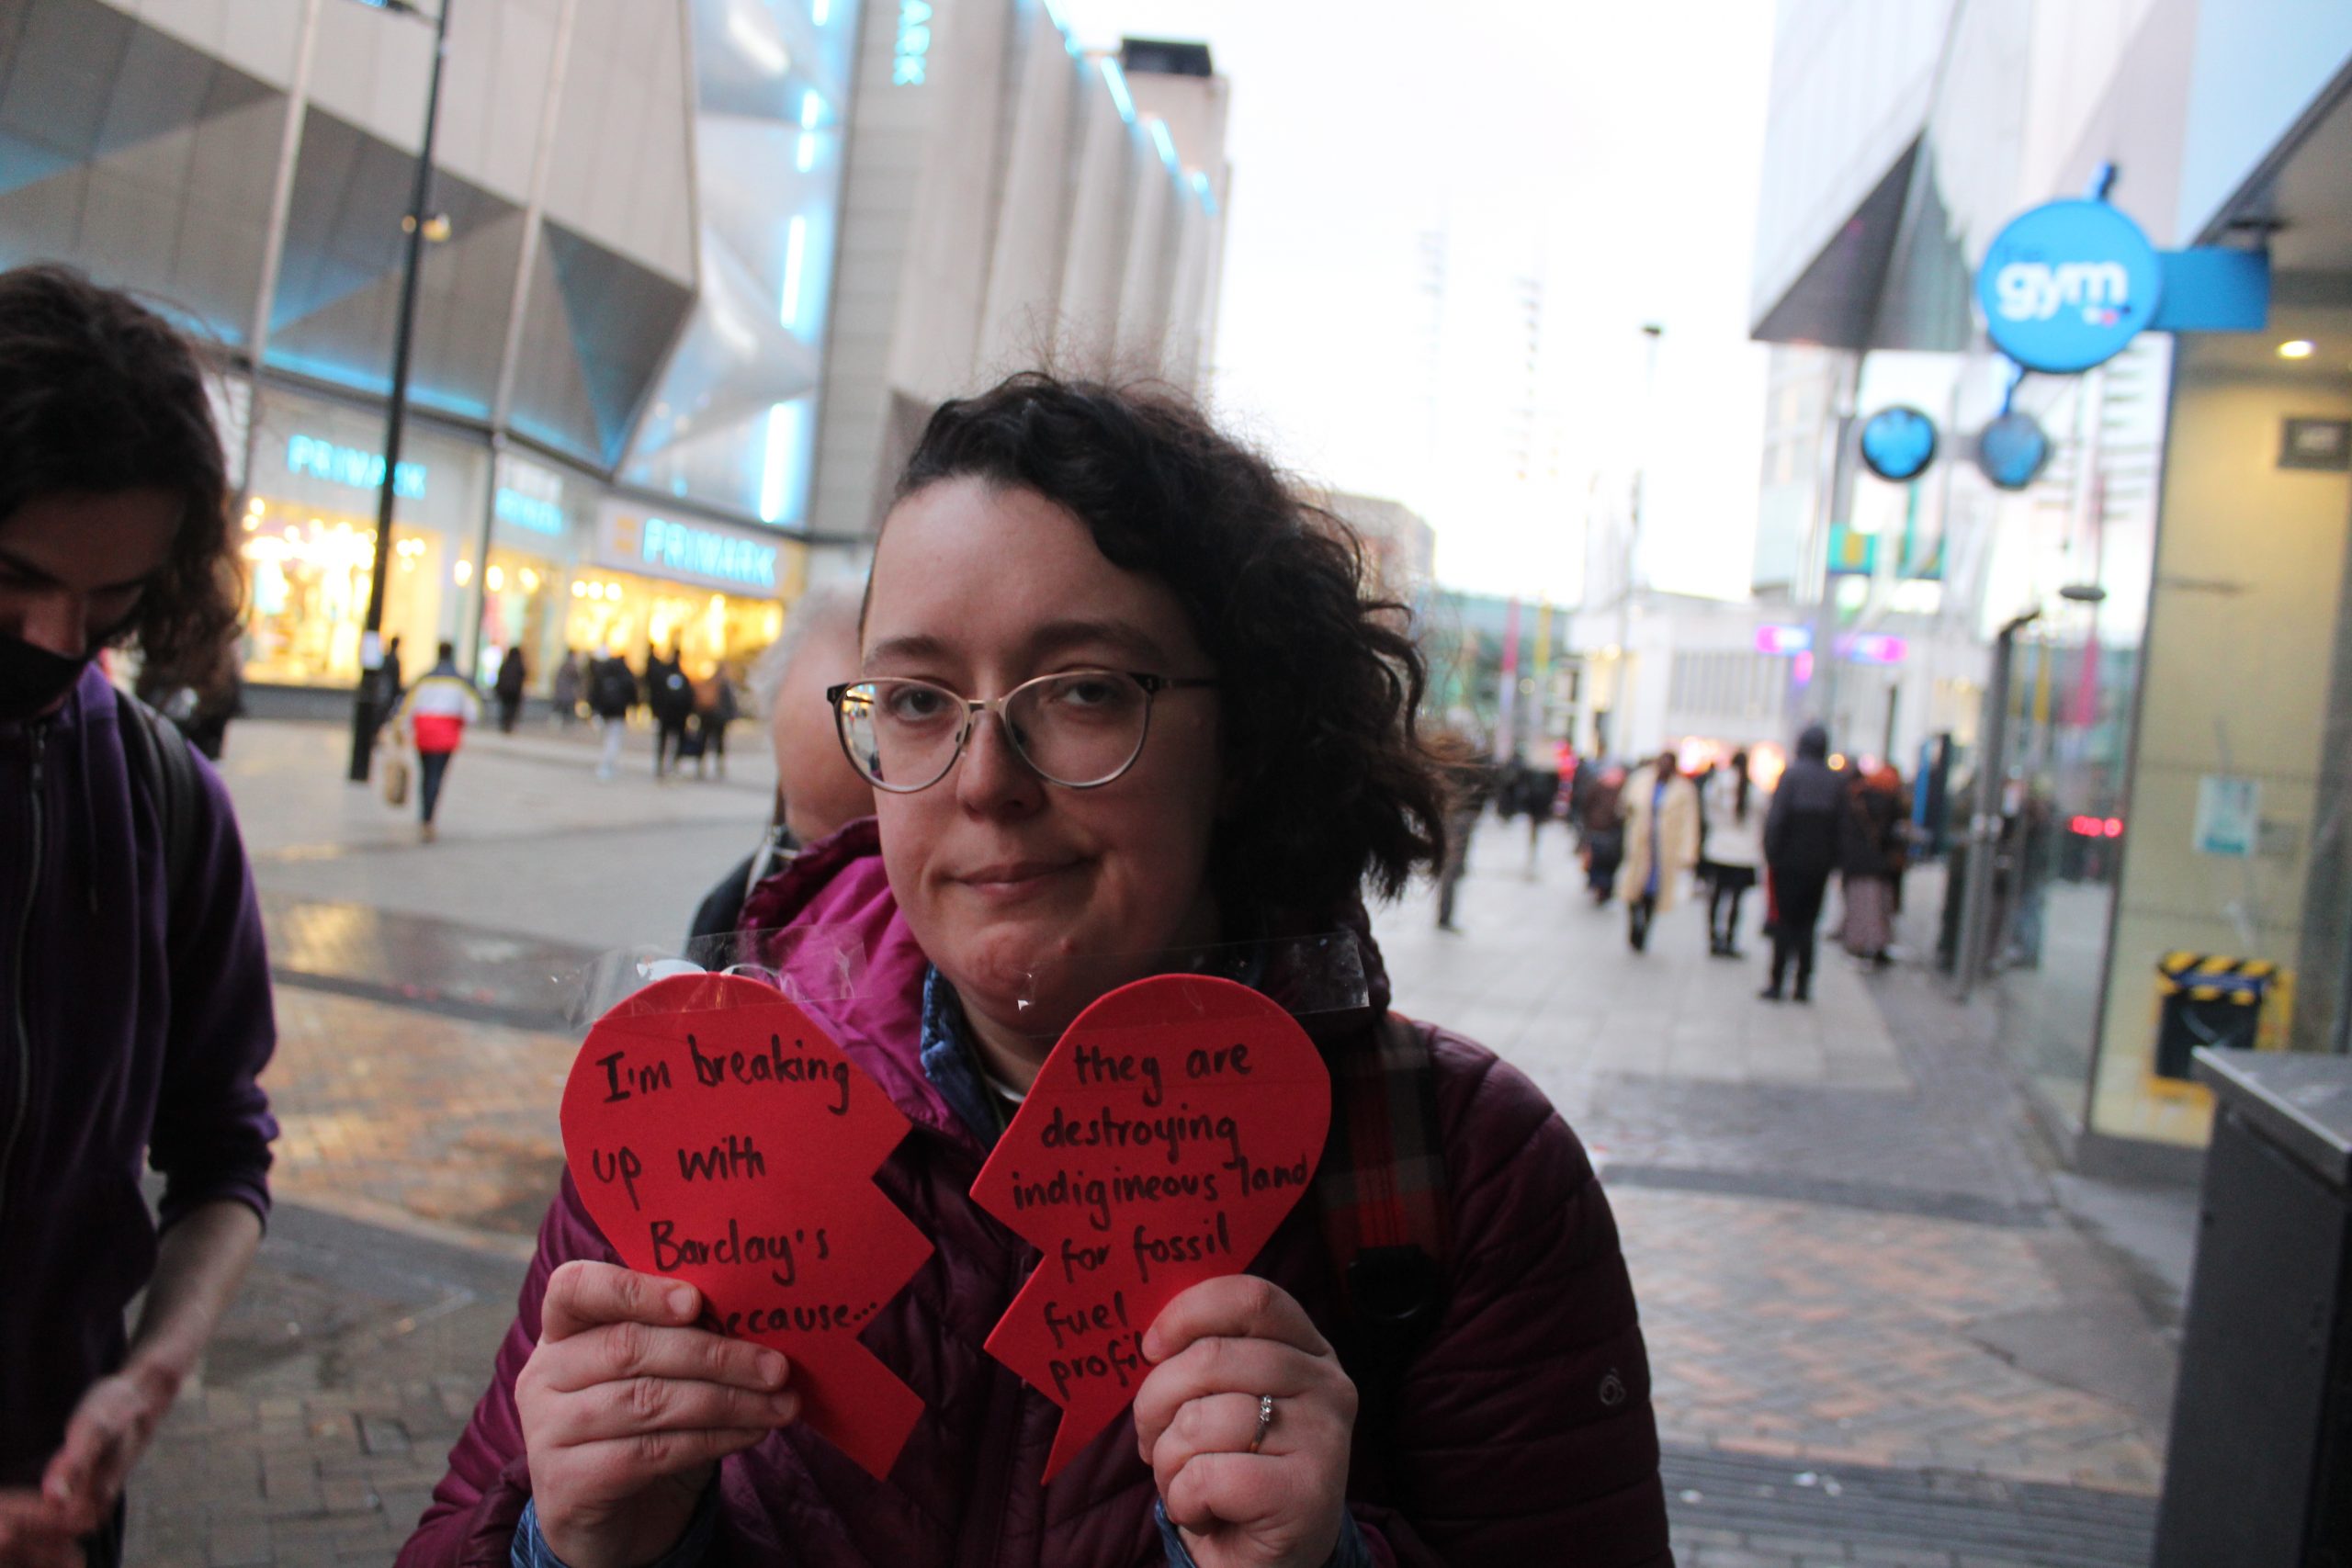 ARK
PRIMARK
PRIMARK
The
gym
I'm breaking
up with
Barclay's
ecause...
they are
destroying
indigineous land
for fossil
fuel
profi